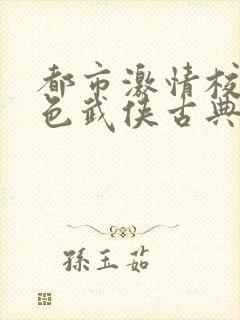 都市激情校
色武侠古典
孫玉茹